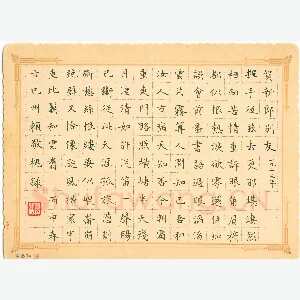 賀新郎 別友
揮手從茲去更那堪淒然
相向苦情重訴眼角眉梢
都似恨熱淚欲零還住知
誤會前番書語過眼滔滔
雲共霧算人間知己吾和
汝人有病天知否今朝霜
重東門路照橫塘半天殘
月淒清如許汽笛一聲腸
已斷從此天涯孤旅憑割
斷愁絲恨縷要似崑崙崩
絕壁又恰像颱風掃寰宇
重比翼和雲翥